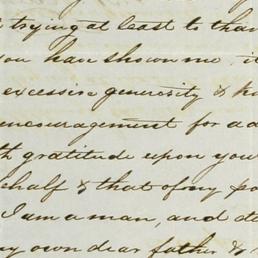 trying at least to than
you have shown me, it
excessive generosity & ki
encouragement for a
th gratitude upon you
behalf & that of my po
I am a man, and d
my own dear father &